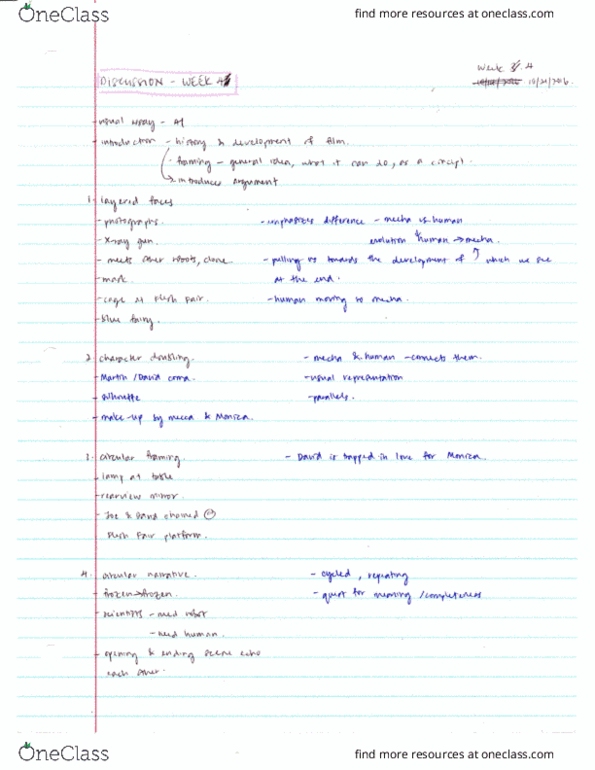 OneClass
find more resources at oneclass.com
Week 3/. 4
DISCUSSION - WEEK 4
10/21/2016.
- visual essay - A1
- introduction - history & development of film.
- framing - general idea, what it can do, as a
→ introduces argument
1. layered faces
- photographs. - emphasizes difference - mecha vs human
- X-ray gun. evolution & human → mecha.
- meets other robots, clone. - pulling us towards the development of ↑ which we see
- mask. at the end.
- cage at flesh fair. - human moving to mecha.
- blue fairy.
2. character doubling. - mecha & human - connects them.
- Martin / David coma. - visual representation
- silhouette - parallels.
- make-up by mecca & Monica.
3. circular framing. - David is trapped in love for Monica.
- lamp at table
- rearview mirror.
- Joe & David chained
Flesh Fair platform.
4. circular narrative. - cycled, repeating
- frozen → frozen. - quest for meaning / completeness
- scientists - need robot
- need human.
- opening & ending scene echo
each other.
OneClass
find more resources at oneclass.com